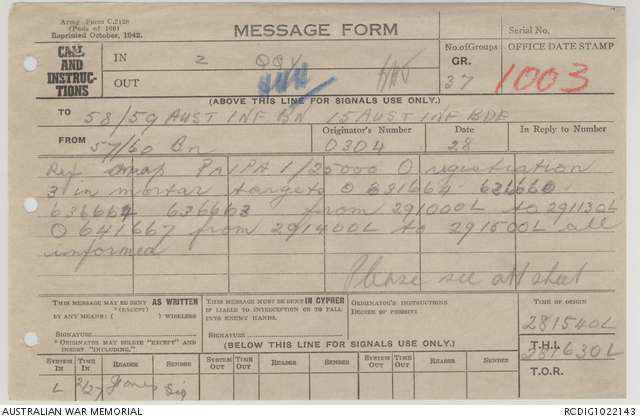 Army Form C.2128
(Pads of 100)
Reprinted October, 1942.
MESSAGE FORM
Serial No.
CALL AND INSTRUC-TIONS
IN Z QQY
OUT
No. of Groups
GR. 37
OFFICE DATE STAMP
1003
(ABOVE THIS LINE FOR SIGNALS USE ONLY.)
TO 58/59 AUST INF BN 15 AUST INF BDE
FROM 57/60 Bn
Originator's Number 0304
Date 28
In Reply to Number
Ref map PAIPA 1/25000 O registration
3 in mortar targets O 631664 636660
636664 636663 from 291000L to 291130L
O 641667 from 291400L to 291500L all
informed
Please see att sheet
THIS MESSAGE MAY BE SENT AS WRITTEN
*(EXCEPT)
BY ANY MEANS: ( ) WIRELESS
SIGNATURE
* ORIGINATOR MAY DELETE "EXCEPT" AND
INSERT "INCLUDING."
THIS MESSAGE MUST BE SENT IN CYPHER
IF LIABLE TO INTERCEPTION OR TO FALL
INTO ENEMY HANDS.
SIGNATURE
ORIGINATOR'S INSTRUCTIONS
DEGREE OF PRIORITY
TIME OF ORIGIN
281540L
T.H.I.
281630L
T.O.R.
(BELOW THIS LINE FOR SIGNALS USE ONLY.)
SYSTEM IN TIME IN READER SENDER SYSTEM OUT TIME OUT READER SENDER SYSTEM OUT TIME OUT READER SENDER
L Jones Sig
AUSTRALIAN WAR MEMORIAL
RCDIG1022143